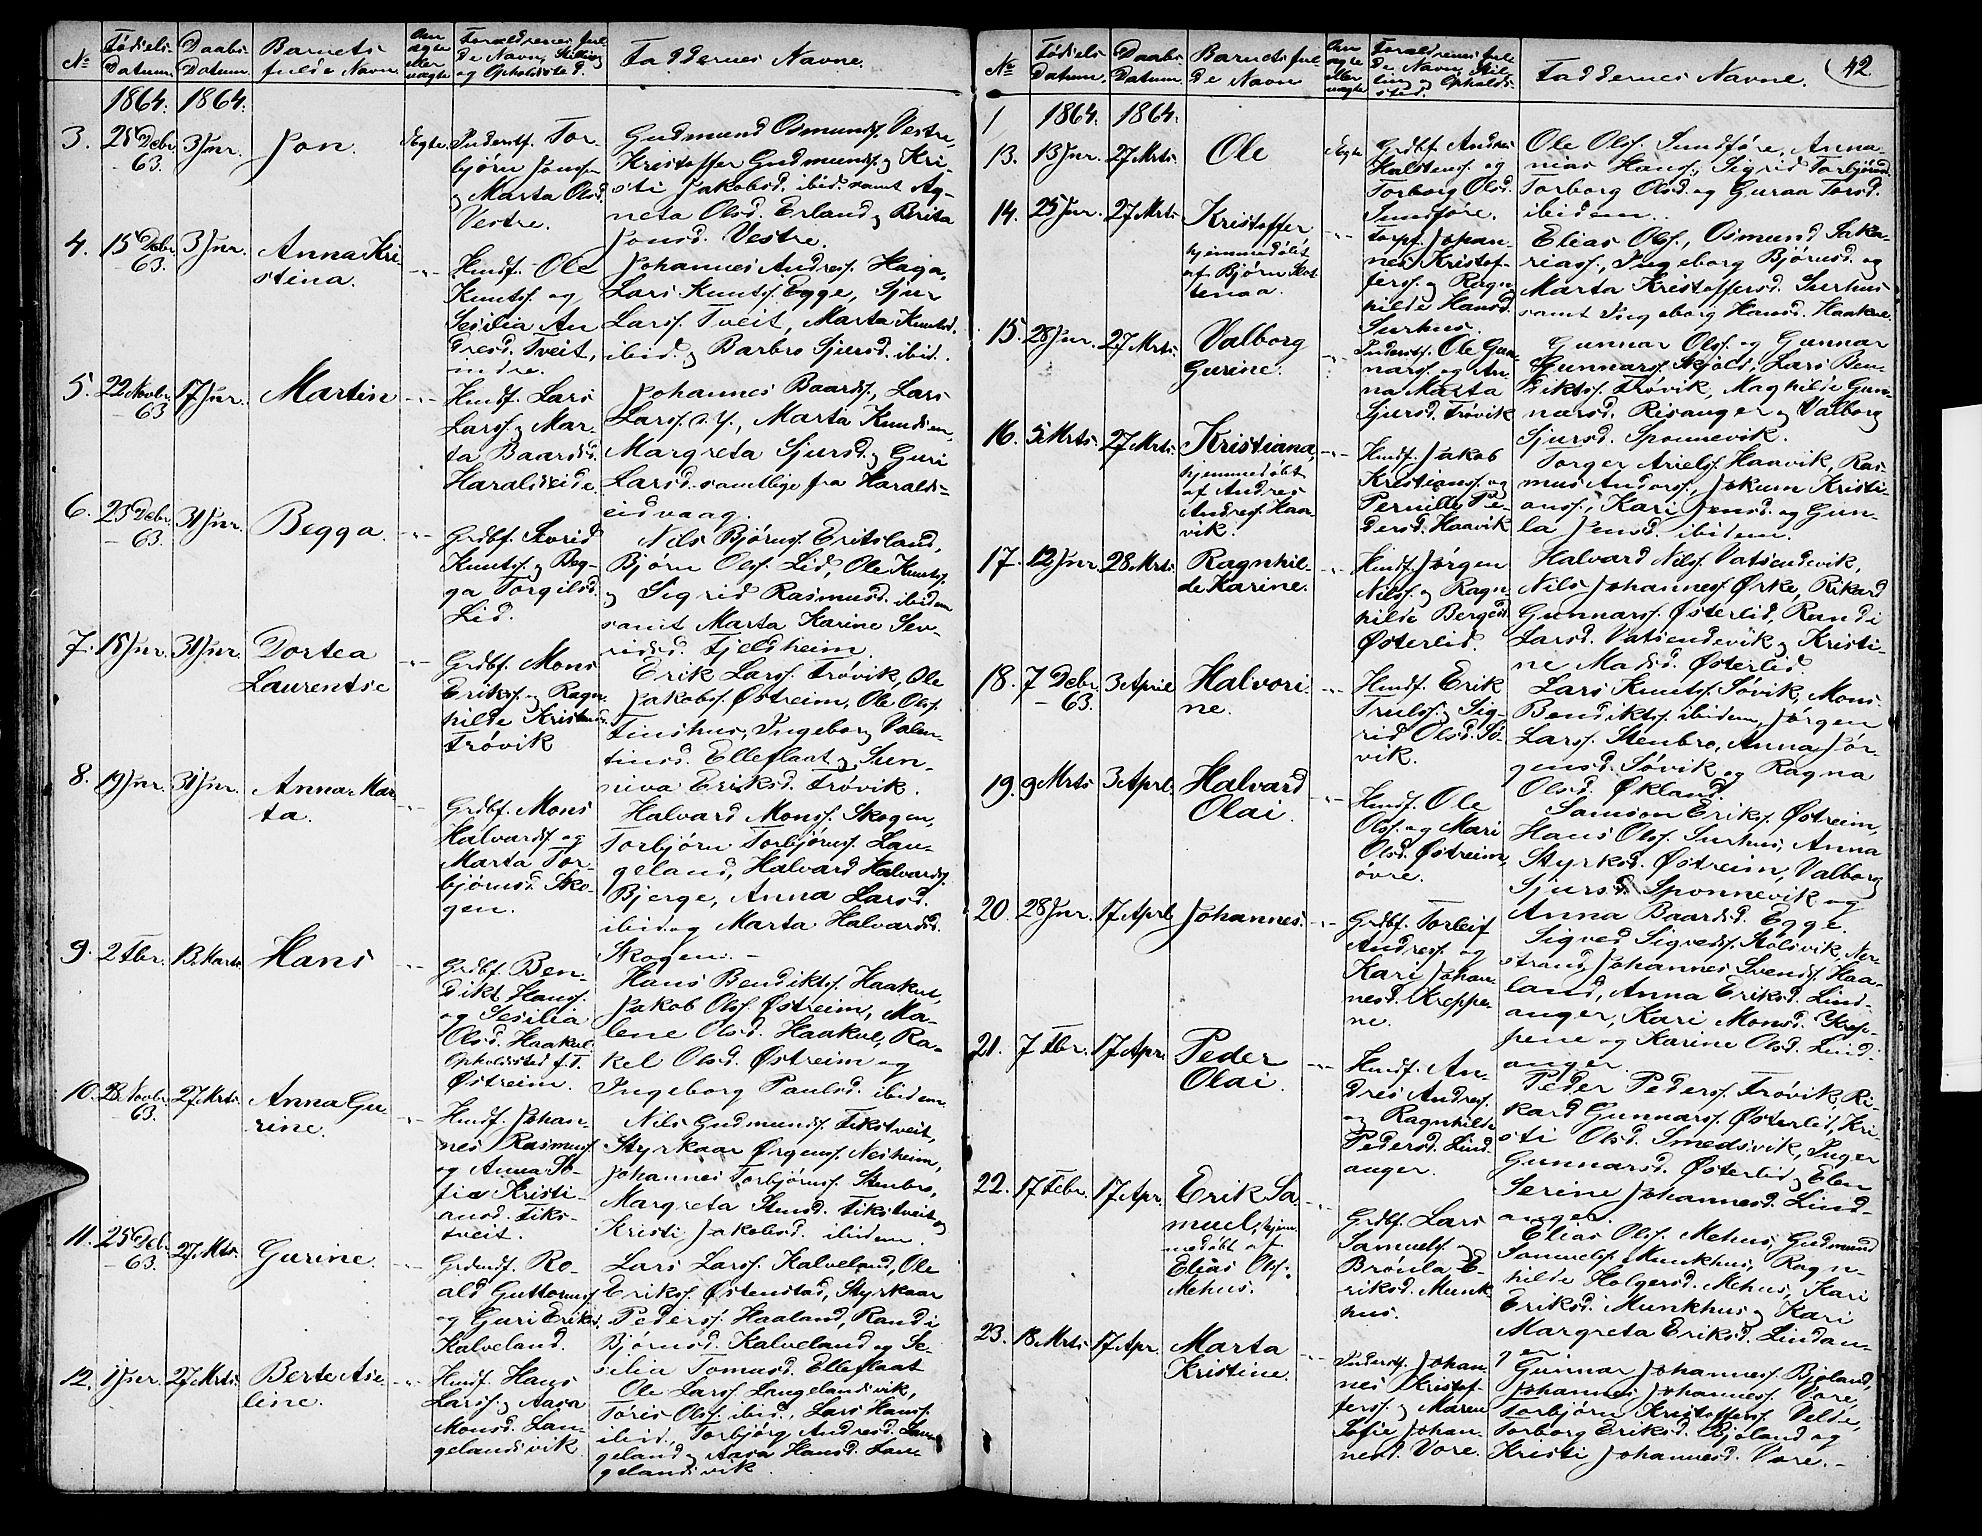 № Fødsels Datum. Daabs Datum. Barnets fulde Navn. Om ægte eller uægte Forældrenes ful- de Navn, Stilling og Opholdsted. Faddernes Navne.
1864. 1864.
3. 28 Debr. 63. 3 Jnr. Jon. Ægte. Inderstf. Tor-
bjørn Jonss.
og Marta Olsd.
Vestre.
Gudmund Osmunds. Vestre,
Kristoffer Gudmunds. og Kri-
sti Jakobsd. ibid. samt Ag-
neta Olsd. Erland og Brita
Jonsd. Vestre.
4. 15 Debr. 63. 3 Jnr. Anna Kri-
stina.
Husdf. Ole
Knuts. og
Sesilia An
dresd. Tveit,
indre.
Johannes Andress. Haga,
Lars Knuts. Egge, Sjur
Larss. Tveit, Marta Knutsd.
ibid. og Barbro Sjursd. ibid.
5. 22 Novbr. 63. 17 Jnr. Martin
Husdf. Lars
Larss. og Mar-
ta Baardsd.
Haraldseide.
Johannes Baards., Lars
Larss. n. y., Marta Knudsen,
Margreta Sjursd. og Guri
Larsd. samtlige fra Haralds-
eidvaag.
6. 23 Debr. 63. 31 Jnr. Begga.
Grdbf. Sevrid
Knuts. og Beg-
ga Torgilsd.
Lid.
Nils Bjørns. Eritsland,
Bjørn Ols. Lid, Ole Knuts.
og Sigrid Rasmusd. ibidem
samt Marta Karine Sev-
ridsd. Fjeldheim.
7. 18 Jnr. 31 Jnr. Dortea
Laurentse
Grdbf. Mons
Eriks. og Ragn-
hilde Kristensd.
Trøvik
Erik Larss. Trøvik, Ole
Jakobs. Østreim, Ole Ols.
Tinshus, Ingeborg Valen-
tinsd. Elleflaat og Sun-
niva Eriksd. Trøvik.
8. 19 Jnr. 31 Jnr. Anna Mar
ta.
Grdbf. Mons
Halvards. og
Marta Tor-
bjørnsd. Sko-
gen.
Halvard Monss. Skogen,
Torbjørn Torbjørns. Lan-
geland, Halvard Halvards.
Bjerge, Anna Larsd.
ibid. og Marta Halvardsd.
Skogen. -
9. 2 Fbr. 13. Marts Hans
Grdbf. Ben-
dikt Hans.
og Sesilia
Olsd. Haakul.
Opholdssted f. T.
Østreim.
Hans Bendikts. Haakul,
Jakob Ols. Østreim, Ma-
lene Olsd. Haakul, Ra-
kel Olsd. Østreim og
Ingeborg Paulsd. ibidem.
10. 28 Novbr. 63. 27 Mrts. Anna Gu
rine.
Husdf. Johan-
nes Rasmuss.
og Anna So-
fie Kristi-
ansd. Tiks-
tveit.
Nils Gudmunds. Tikstveit,
Styrkaar Ørgens. Nesheim,
Johannes Torbjørns. Stenbro,
Margreta Stensd. Tikstveit og
Kristi Jakobsd. ibidem.
11. 25 Debr. 63. 27 Mts. Gurine.
Ro-
ald Guttorms.
og Guri Eriksd.
Kalveland.
Lars Larss. Kalveland, Ole
Eriks. Østenstad, Styrkaar
Peders. Haaland, Randi
Bjørnsd. Kalveland og Se-
silia Tomasd. Elleflaat
12. 1 Jnr. 27 Mrts. Berte Ase-
line.
Husdf. Hans
Larss. og Aasa
Monsd. Lan-
gelandsvik
Ole Larss. Langelandsvik,
Tøris Ols. ibid., Lars Hans.
ibid., Torbjørg Andresd. Lan-
geland og Aasa Hansd. Lan-
gelandsvik.
№ Fødsels Datum. Daabs Datum. Barnets ful- de Navn Om ægte eller uægte Forældrenes ful- de Navn, Stil- ling og Opholds- sted. Faddernes Navne. 42
1 1864. 1864.
13. 13 Jnr. 27 Mrts. Ole Ægte
Grdbf. Andres
Halstens. og
Torborg Olsd.
Sundføre.
Ole Ols. Sundføre, Anna-
nias Hans., Sigrid Torbjørnsd.
Torborg Olsd. og Guraa Torsd.
ibidem.
14. 25 Jnr. 27 Mrts. Kristoffer
hjemmedøbt
af Bjørn Slot
tenaa.
Torpf. Johan-
nes Kristof-
fers. og Ragn
hilde Hansd.
Surhus.
Elias Ols., Osmund Saka-
rias., Ingeborg Bjørnsd. og
Marta Kristoffersd. Surhus
samt Ingeborg Hansd. Haakul.
15. 28 Jnr. 27 Mrts. Valborg
Gurine.
Inderstf. Ole Gun-
nars. og An-
na Marta
Sjursd. Trøvik
Gunnar Ols. og Gunnar
Gunnars. Skjold, Lars Ben-
dikts. Trøvik, Maghilde Gun-
narsd. Risanger og Valborg
Sjursd. Sponnevik.
16. 5 Mrts. 27 Mrts. Kristiana,
hjemmedøbt
af Andres
Andress. Haa-
vik.
Husdf. Jakob
Kristians. og
Pernille Pe-
dersd. Haavik
Torger Ariels. Haavik, Ras-
mus Anders., Jokum Kristi-
ans., Kari Jensd. og Gun-
la Jensd. ibidem.
17. 12 Jnr. 28 Mrts. Ragnhil-
de Karine.
Husdf. Jørgen
Nilss. og Ragn
hilde Bergesd.
Østerlid.
Halvard Nilss. Vatsendevik,
Nils Johanness. Ørke, Rikard
Gunnars. Østerlid, Randi
Larsd. Vatsendevik og Kristi-
ne Madsd. Østerlid.
18. 7 Debr. 63. 3 April Halvori-
ne.
Husdf. Erik
Trulss. og Sig-
rid Olsd. Sø-
vik.
Lars Knuts. Søvik, Mons
Bendikts. ibidem, Jørgen
Larss. Stenbro, Anna Jør-
gensd. Søvik og Ragna
Olsd. Økland.
19. 9 Mrts 3 Aprl. Halvard
Olai.
Husdf. Ole
Ols. og Mari
Olsd. Østreim,
øvre.
Samson Eriks. Østreim,
Hans Ols. Surhus, Anna
Styrksd. Østreim, Valborg
Sjursd. Sponnevik og
Anna Baardsd. Egge.
20. 28 Jnr. 17 Aprl. Johannes.
Grdbf. Torleif
Andress. og
Kari Johan-
nesd. Kreppe-
ne.
Sigved Sigveds. Stølsvik, Ner-
strand, Johannes Svends. Haa-
land, Anna Eriksd. Lind-
anger, Kari Monsd. Krep-
pene og Karine Olsd. Lind-
anger.
21. 7 Fbr. 17 Apr. Peder
Olai.
Husdf. An-
dres Andress.
og Ragnhilde
Pedersd. Lind
anger.
Peder Peders. Trøvik, Ri-
kard Gunnars. Østerlid, Kri-
sti Olsd. Smedsvik, Inger
Gunnarsd. Østerlid og Elen
Serine Johannesd. Lind-
anger.
22. 17 Febr. 17 Apr. Erik Sa-
muel, hjem-
medøbt af
Elias Ols.
Mehus.
Grdbf. Lars
Samuels. og
Brøula E-
riksd. Munk
hus.
Elias Ols. Mehus, Gudmund
Samuels. Munkhus, Ragn-
hilde Holgersd. Mehus, Kari
Eriksd. Munkhus og Kari
Margreta Eriksd. Lindan-
ger.
23. 18 Mrts. 17 Apr. Marta
Kristine.
Inderstf. Johan-
nes Kristof-
fers. og Maren
Sofie Johan-
nesd. Vore.
Gunnar Johanness. Bjoland,
Johannes Johanness. Vore,
Torbjørn Kristoffers. Velde,
Torborg Eriksd. Bjoland og
Kristi Johannesd. Vore. -